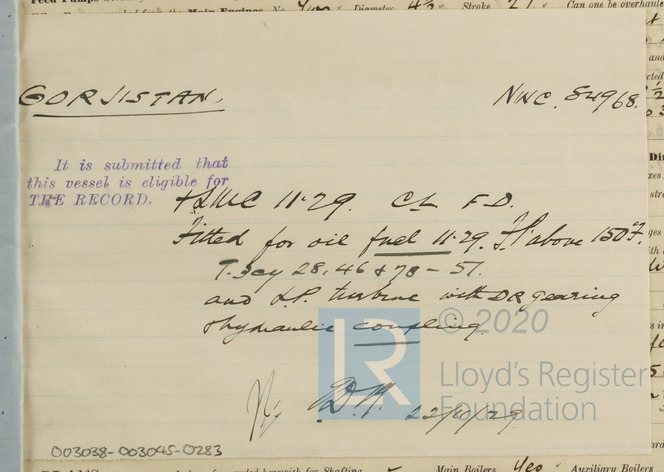 Feed Pumps Diameter 4½ Stroke 27 Can one be overhaule
Main Engines, No.
GORJISTAN. NWC. 84968.
It is submitted that
this vessel is eligible for
THE RECORD.
+ LMC 11.29. CL F.D.
Fitted for oil fuel 11.29. F.P. above 150°F.
T. 3cy 28, 46 & 78 - 51.
and L.P. turbine with DR gearing
& hydraulic coupling
© 2020
LR
Lloyd's Register
Foundation
22/11/29
003038-003045-0283
for Shafting Main Boilers Yes Auxiliary Boilers